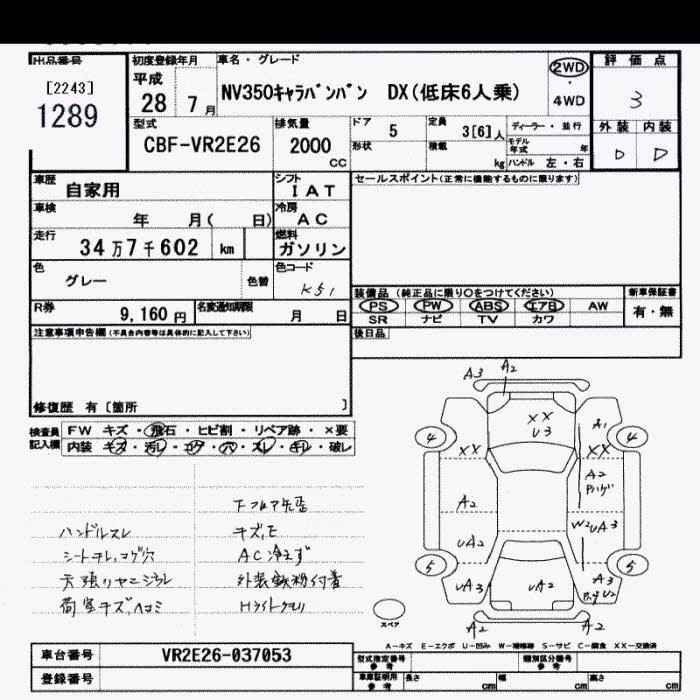 出品番号
[2243]
1289
初度登録年月
平成
28 7月
車名・グレード
NV350キャラバンバン DX(低床6人乗)
2WD
・
4WD
評価点
3
外装 内装
D D
型式
CBF-VR2E26
排気量
2000
CC
ドア
5
定員
3[6]人
ディーラー・並行
形状
積載
kg
モデル年式 年
ハンドル 左・右
車歴
自家用
シフト
IAT
セールスポイント(正常に機能するものに限ります)
車検
年 月( 日)
冷房
AC
走行
34万7千602 km
燃料
ガソリン
色
グレー
色替
色コード
K51
R券
9,160円
名変通知期限
月 日
装備品 (純正品に限り○をつけてください)
PS PW ABS エアB AW
SR ナビ TV カワ
新車保証書
有・無
注意事項申告欄(不具合内容等は具体的に記入して下さい)
後日品
修復歴 有[箇所 ]
検査員記入欄
FW キズ・飛石・ヒビ割・リペア跡・×要
内装 キズ・汚レ・コゲ・穴・スレ・キレ・破レ
下フロア先歪
ハンドルスレ キズ,モ
シートキレ,コゲ穴 AC冷えず
天張リヤニジウレ 外装鉄粉付着
荷室キズ,ヘコミ Hライトクモリ
A3 A2
XX
U3
A1
4 4
XX XX
A2
Pハゲ
A2
W2 UA3
UA2
5 5
UA3 UA2 A3
Pハゲ U2
A2 A2
スペア
A-キズ E-エクボ U-凹み W-補修跡 S-サビ C-腐食 XX-交換済
車台番号
VR2E26-037053
登録番号
型式指定番号
参考
類別区分番号
参考
車庫証明用
参考
長さ cm 幅 cm 高さ cm